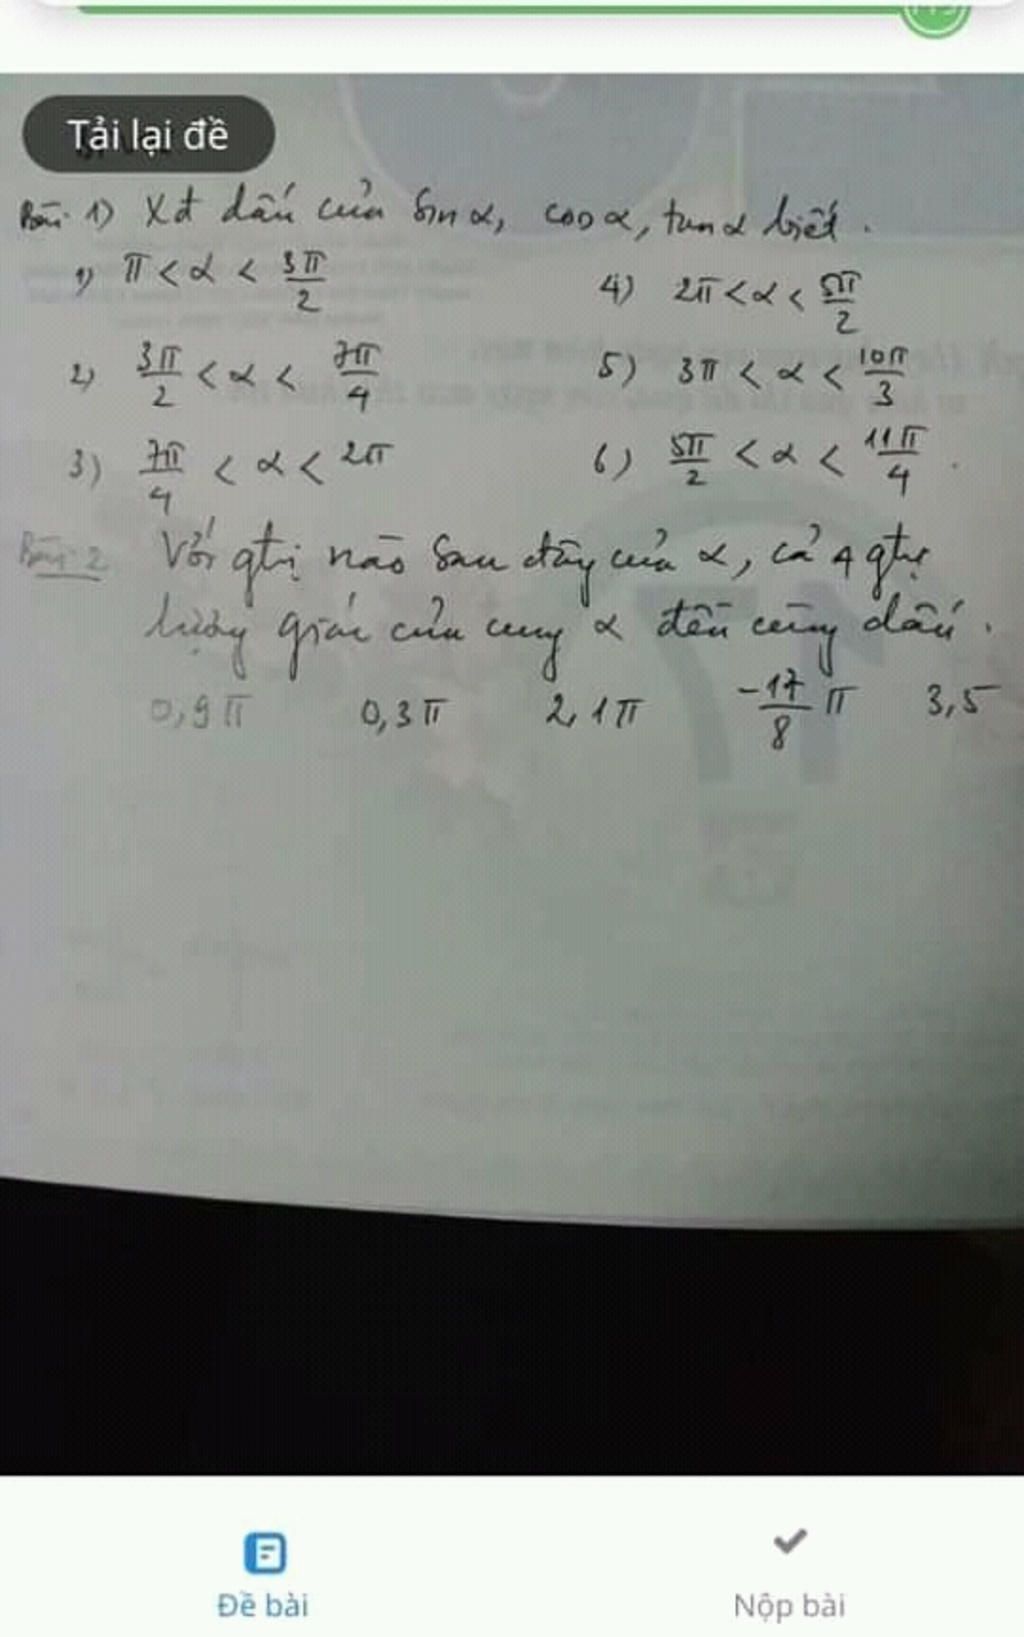 Tải lại đề
Bài 1) Xđ dấu của sin α, cos α, tan α biết.
1) π < α < 3π/2
4) 2π < α < 5π/2
2) 3π/2 < α < 7π/4
5) 3π < α < 10π/3
3) 7π/4 < α < 2π
6) 5π/2 < α < 11π/4.
Bài 2 Với gtrị nào sau đây của α, cả 4 gtrị
lượng giác của cung α đều cùng dấu.
0,9π 0,3π 2,1π -17/8 π 3,5
Đề bài
Nộp bài